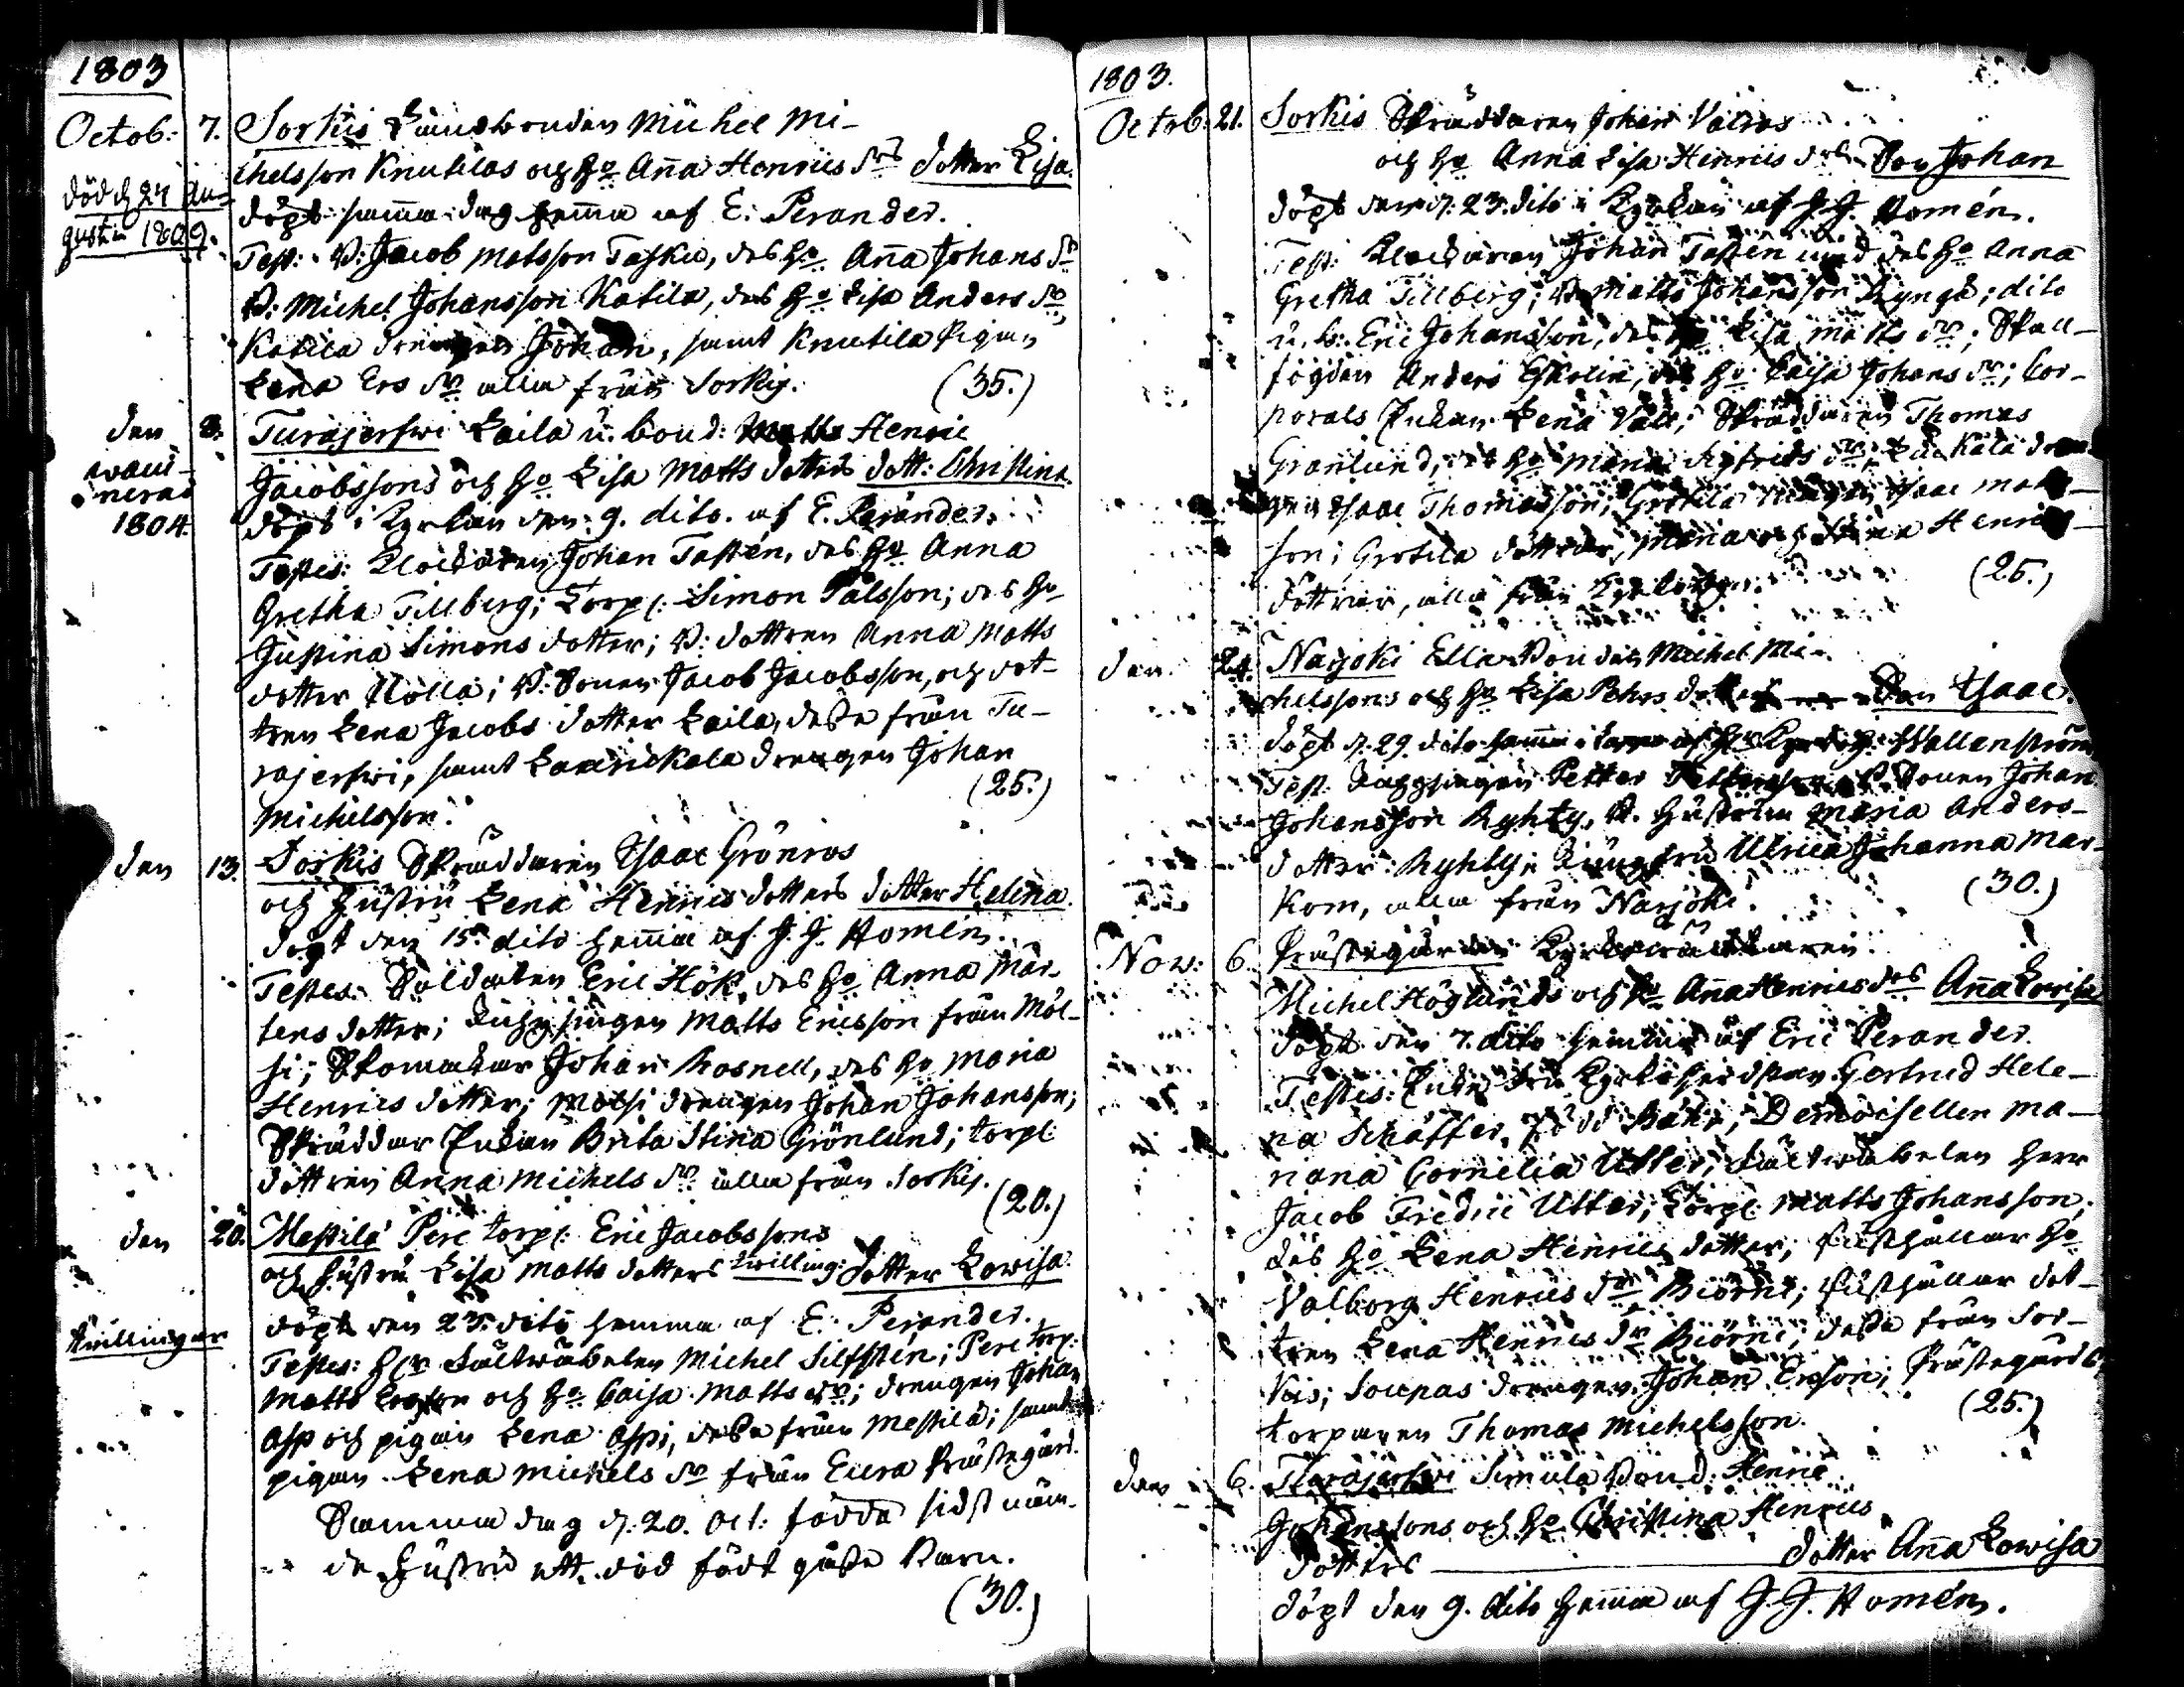 1803
Octob: 7. Sorkis Landbonden Michel Mi-
chelsson Knutilas och ho Anna Henrics drs dotter Lisa.
död d. 24 Au-
gusti 1809.
döpt samma dag hemma af E. Perander.
Test: B: Jacob Matsson Tasku, des ho Anna Johans dr
B: Michel Johansson Katila, des ho Lisa Anders dr,
Katila drengen Johan, samt Knutila Pigan
Lena Ers dr alla från Sorkis. (35.)
den 8. Turajerfwi Laila u. bond: Henric
Jacobssons och ho Lisa Matts dotters dott: Christina.
1804.
döpt i Kyrkan den 9. dito. af E. Perander.
Testes: Klockaren Johan Tastén, des ho Anna
Gretha Tillberg; Torp: Simon Pålsson; des ho
Justina Simons dotter; B: dottren Anna Matts
dotter Nolla; B: Sonen Jacob Jacobsson, och dot-
tren Lena Jacobs dotter Laila, desse från Tu-
rajerfwi, samt drengen Johan
Michelsson. (25.)
den 13. Sorkis Skräddaren Isaac Grönros
och hustru Lena Henrics dotters dotter Helena.
döpt den 15. dito hemma af J. J. Homén.
Testes: Soldaten Eric Hök, des ho Anna Mår-
tens dotter; Matts Ericsson från Möl-
si; Skomakar Johan Rosnell, des ho Maria
Henrics dotter; drengen Johan Johansson;
Skräddar Enkan Brita Stina Grönlund; torp:
dottren Anna Michels dr alla från Sorkis. (20.)
den 20. Mestilä Pere torp: Eric Jacobssons
och hustru Lisa Matts dotters twilling: dotter Lowisa.
Tvillingar
döpt den 23. dito hemma af E. Perander.
Testes: Hr Fältwäbelen Michel Silfstén; Pere torp:
Matts och ho Caisa Matts dr; drengen Johan
Asp och pigan Lena Aspi, desse från Mestilä; samt
pigan Lena Michels dr från Eura Prästegård.
Samma dag d. 20. Oct: födde sidst näm-
de hustru ett död född gåsse Barn.
(30.)
1803.
Octob: 21. Sorkis Skräddaren Johan Valros
och ho Anna Lisa Henrics drs Son Johan
döpt den 23. dito i Kyrkan af J. J. Homén.
Test: Klockaren Johan Tastén med des ho Anna
Gretha Tillberg; B: Matts Johansson; dito
u. b: Eric Johansson, des ho Lisa Matts dr; Skall-
fogden Anders, des ho Caisa Johans dr; Cor-
porals Enkan Lena Vall; Skräddaren Thomas
Granlund, des ho Maria dr;
Isaac Thomasson; Grotila drengen Isaac Mats-
son; Grotila döttrar, Maria och Henrics
döttrar, alla från Kyrkobyn. (25.)
den 24. Narjoki Ella Bonden Michel Mi-
chelssons och ho Lisa Pehrs dotters Son Isaac.
döpt d. 29. dito Wallenström
Test: Petter; B. Sonen Johan
Johansson Ryhty, B. hustrun Maria Anders-
dotter Ryhty; Jungfru Ulrica Johanna Mar-
kom, alla från Narjoki. (30.)
Nov: 6. Prästegården
Michel Höglunds och ho Anna Henrics drs Anna Lowisa
döpt den 7. dito hemma af Eric Perander.
Testes: Gertrud Hele-
na Schäffer, född; Demoisellen Ma-
riana Cornelia Utter, Fältwäbelen Herr
Jacob Fredric Utter; Torp: Matts Johansson,
des ho Lena Henrics dotter; Rusthållar ho
Valborg Henrics dr Biörni; Rusthållar dot-
tren Lena Henrics dr Biörni; desse från Sor-
kis; Soupas drengen Johan Ersson; Prästegårds
torparen Thomas Michelsson. (25.)
den 6. Turajerfwi Simula Bond: Henric
Johanssons och ho Christina Henrics
dotters dotter Anna Lowisa
döpt den 9. dito hemma af J. J. Homén.